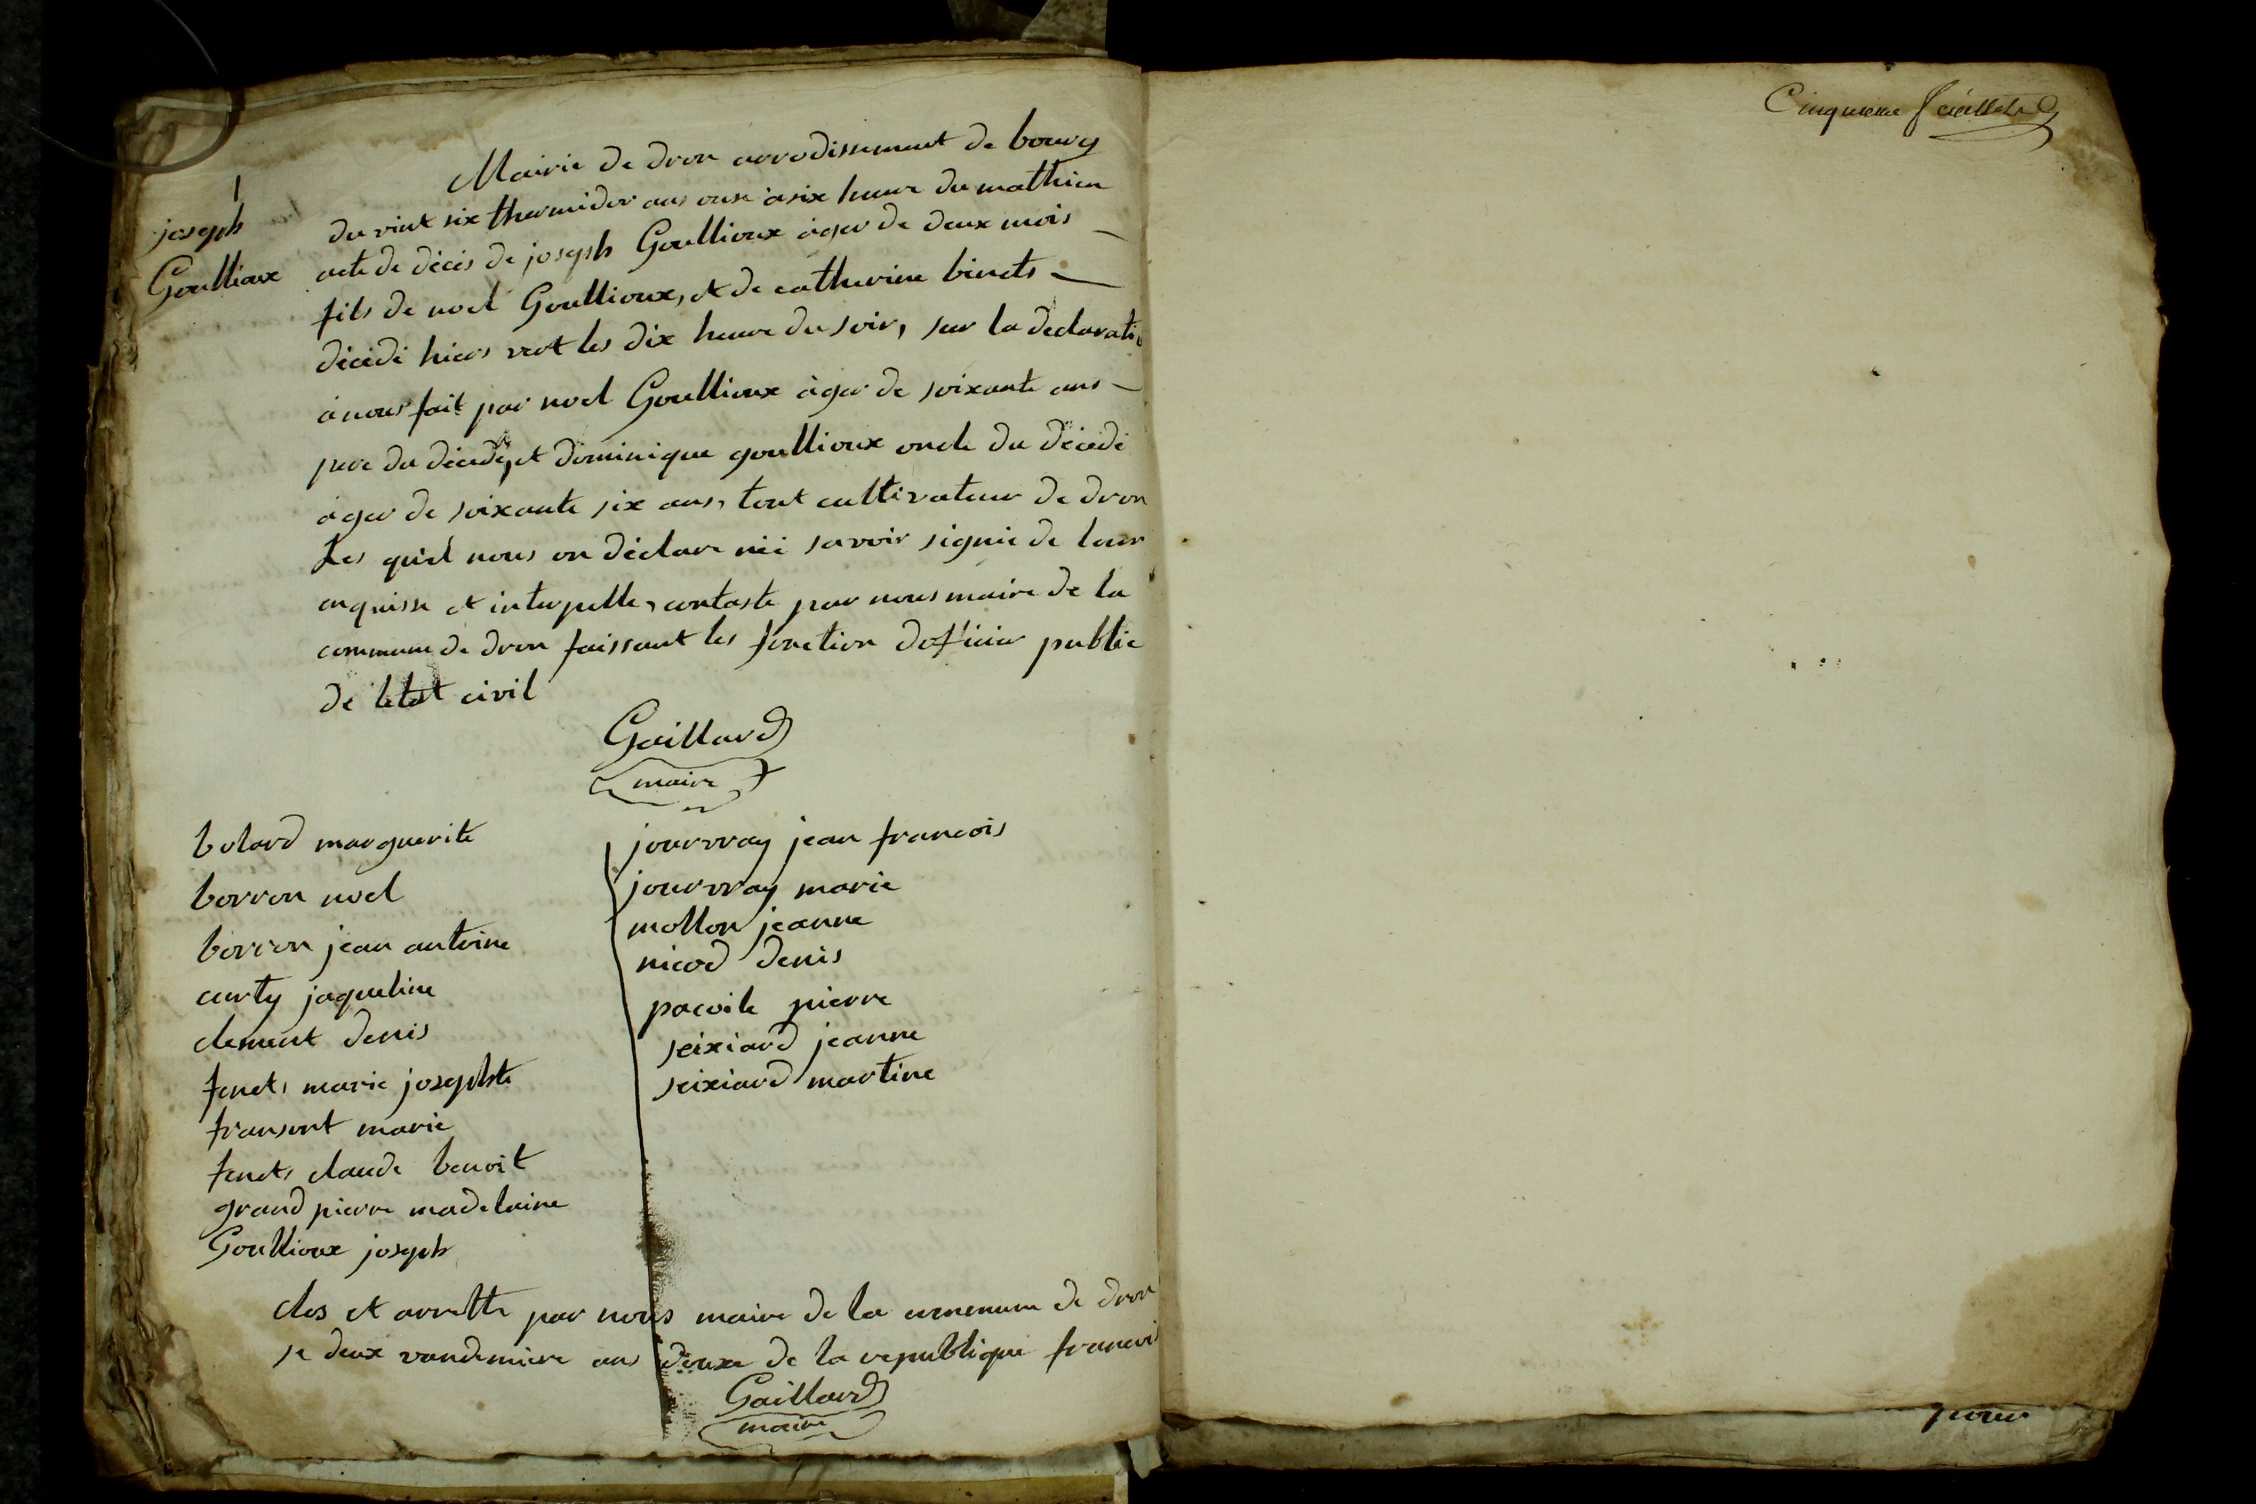 Cinquieme feuillet
Mairie de dron arrodissement de bourg
joseph
Goullioux
du vint six thermidor ans onse à six heure du mathien
acte de décès de joseph Goullioux àger de deux mois
fils de noel Goullioux, et de catherine binets
décédé hiers vert les dix heure du soir, sur la declaratio
à nous fait par noel Goullioux àger de soixante ans
pere du décedé, et dominique goullioux oncle du décedé
àger de soixante six ans, tout cultivateur de dron
Les quel nous on déclare néé savoir signié de leur
enquisse et interpelle, contaste par nous maire de la
commune de dron faissant les fonction deficier public
de letat civil
Gaillard
maire
bolard marguerite
borron noel
borron jean antoine
curty jaqueline
clement denis
fenets marie josephte
fransont marie
fenets claude benoit
grand pierre madelaine
Goullioux joseph
jourvray jean francois
jourvray marie
mollon jeanne
nicod denis
pacoile pierre
seixiard jeanne
seixiard martine
clos et arrette par nous maire de la commune de dron
se deux vandemiere ans douxe de la republique francois
Gaillard
maire